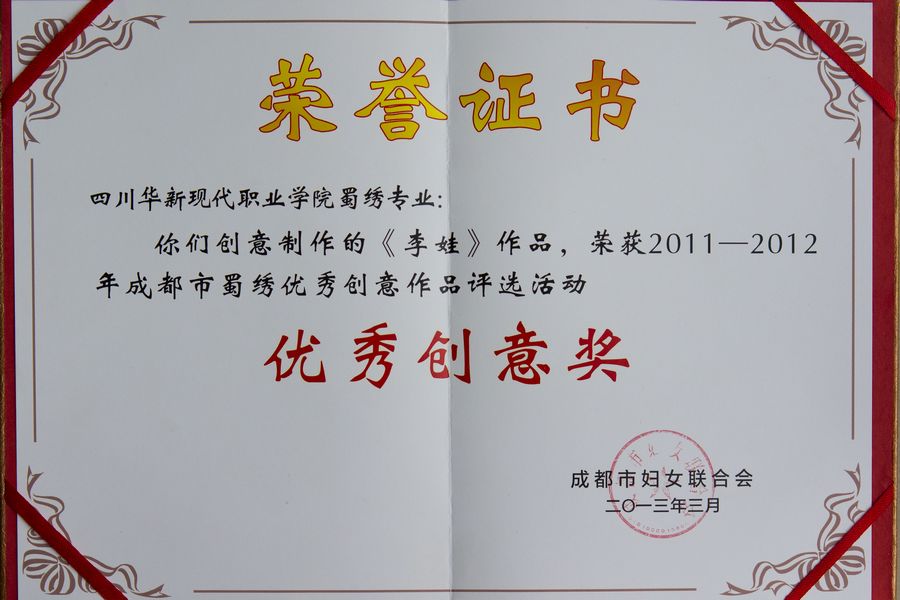 荣誉证书
四川华新现代职业学院蜀绣专业：
你们创意制作的《李娃》作品，荣获2011—2012
年成都市蜀绣优秀创意作品评选活动
优秀创意奖
成都市妇女联合会
二〇一三年三月